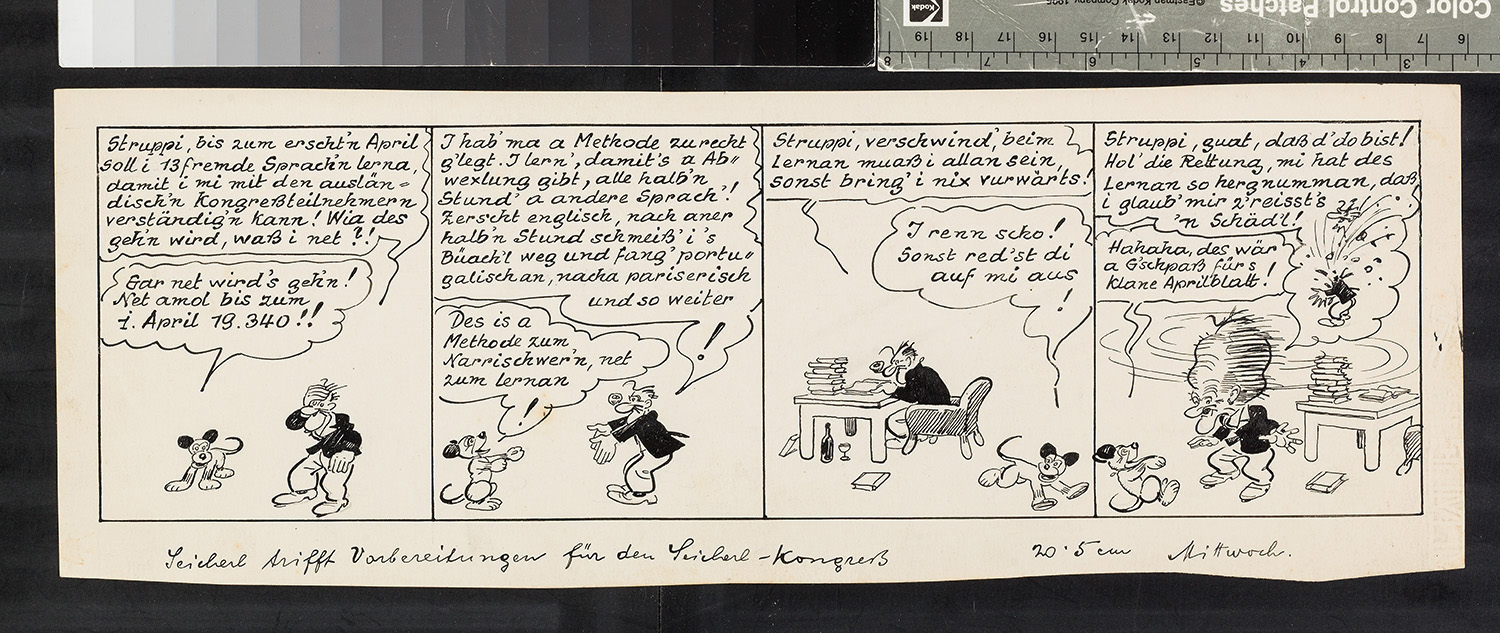 Color Control Patches
©Eastman Kodak Company, 1995
Kodak
19 18 17 16 15 14 13 12 11 10 9 8 7 6
8 7 6 5 4 3
Struppi, bis zum erscht'n April
soll i 13 fremde Sprach'n lerna,
damit i mi mit den auslän=
disch'n Kongreßteilnehmern
verständig'n kann! Wia des
geh'n wird, waß i net ?!
Gar net wird's geh'n!
Net amol bis zum
1. April 19.340!!
I hab' ma a Methode zurecht
g'legt. I lern', damit's a Ab=
wexlung gibt, alle halb'n
Stund' a andere Sprach'!
Zerscht englisch, nach aner
halb'n Stund schmeiß' i 's
Büach'l weg und fang' portu=
galisch an, nacha pariserisch
und so weiter
!
Des is a
Methode zum
Narrischwer'n, net
zum Lernan
!
Struppi, verschwind', beim
Lernan muaß i allan sein,
sonst bring' i nix vurwärts!
I renn scho!
Sonst red'st di
auf mi aus
!
Struppi, guat, daß d' do bist!
Hol' die Rettung, mi hat des
Lernan so hergnumman, daß
i glaub' mir z'reisst's
'n Schäd'l!
Hahaha, des wär
a G'schpaß fürs
klane Aprilblatt!
Seicherl trifft Vorbereitungen für den Seicherl-Kongreß
20·5 cm Mittwoch.